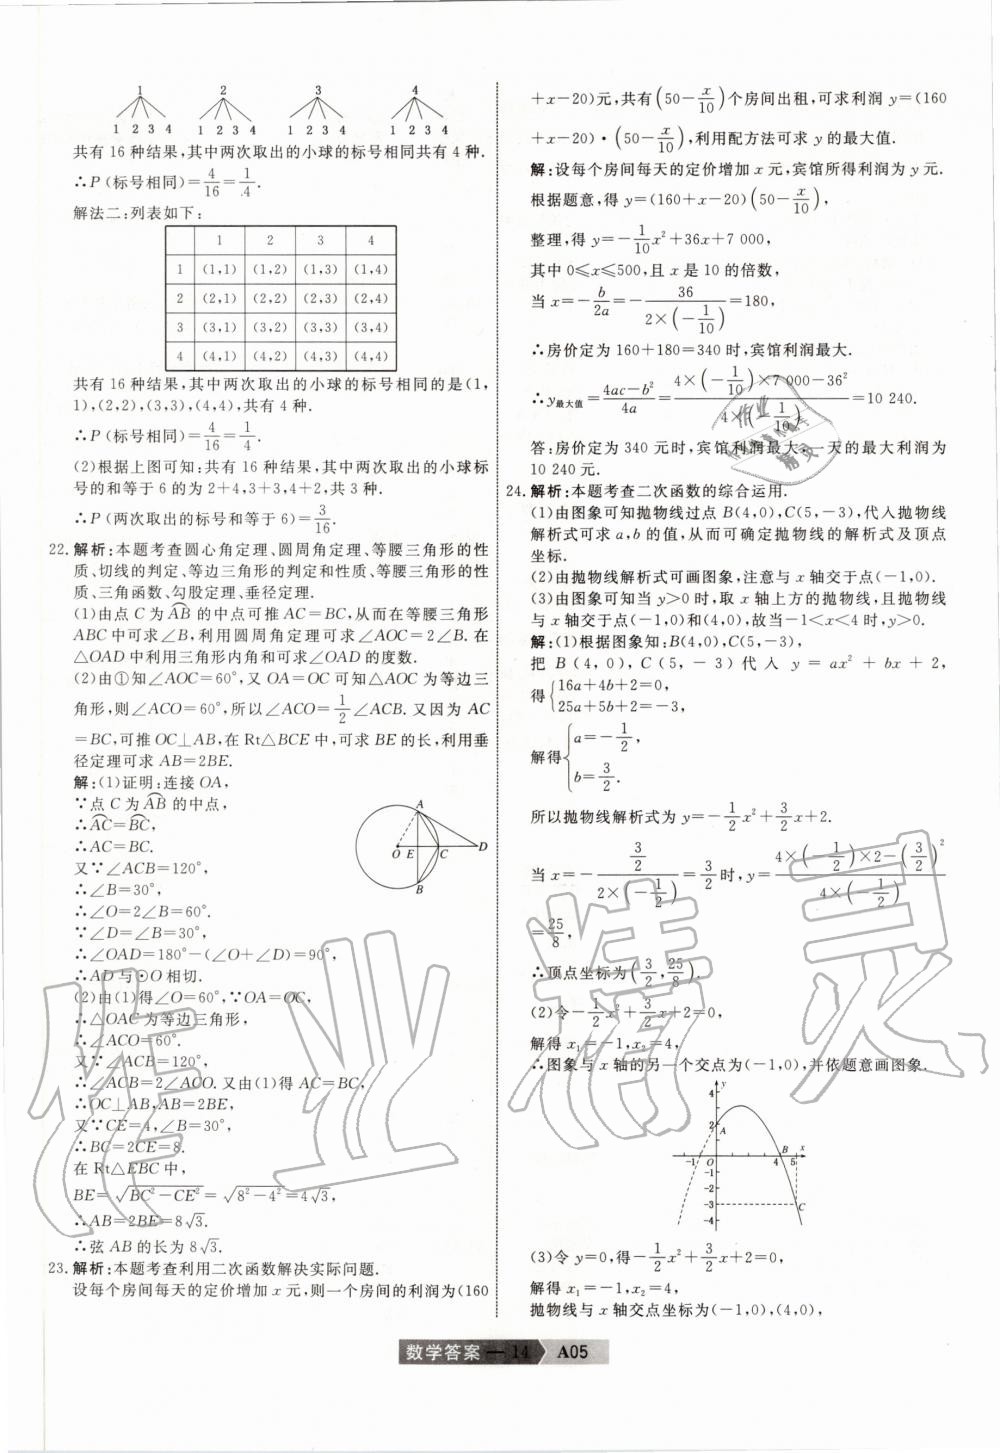 1 2 3 4
1 2 3 4 1 2 3 4 1 2 3 4 1 2 3 4
共有 16 种结果,其中两次取出的小球的标号相同共有 4 种.
∴P(标号相同)=4/16=1/4.
解法二:列表如下:
1 2 3 4
1 (1,1) (1,2) (1,3) (1,4)
2 (2,1) (2,2) (2,3) (2,4)
3 (3,1) (3,2) (3,3) (3,4)
4 (4,1) (4,2) (4,3) (4,4)
共有 16 种结果,其中两次取出的小球的标号相同的是(1,
1),(2,2),(3,3),(4,4),共有 4 种.
∴P(标号相同)=4/16=1/4.
(2)根据上图可知:共有 16 种结果,其中两次取出的小球标
号的和等于 6 的为 2+4,3+3,4+2,共 3 种.
∴P(两次取出的标号和等于 6)=3/16.
22. 解析:本题考查圆心角定理、圆周角定理、等腰三角形的性
质、切线的判定、等边三角形的判定和性质、等腰三角形的性
质、三角函数、勾股定理、垂径定理.
(1)由点 C 为⌒AB 的中点可推 AC=BC,从而在等腰三角形
ABC 中可求∠B,利用圆周角定理可求∠AOC=2∠B. 在
△OAD 中利用三角形内角和可求∠OAD 的度数.
(2)由①知∠AOC=60°,又 OA=OC 可知△AOC 为等边三
角形,则∠ACO=60°,所以∠ACO=1/2∠ACB. 又因为 AC
=BC,可推 OC⊥AB,在 Rt△BCE 中,可求 BE 的长,利用垂
径定理可求 AB=2BE.
解:(1)证明:连接 OA,
∵点 C 为⌒AB 的中点,
∴⌒AC=⌒BC,
∴AC=BC.
又∵∠ACB=120°,
∴∠B=30°,
∴∠O=2∠B=60°.
∵∠D=∠B=30°,
∴∠OAD=180°-(∠O+∠D)=90°,
∴AD 与⊙O 相切.
(2)由(1)得∠O=60°,∵OA=OC,
∴△OAC 为等边三角形,
∴∠ACO=60°.
又∵∠ACB=120°,
∴∠ACB=2∠ACO. 又由(1)得 AC=BC,
∴OC⊥AB,AB=2BE,
又∵CE=4,∠B=30°,
∴BC=2CE=8.
在 Rt△EBC 中,
BE=√(BC²-CE²)=√(8²-4²)=4√3,
∴AB=2BE=8√3.
∴弦 AB 的长为 8√3.
A
O E C D
B
23. 解析:本题考查利用二次函数解决实际问题.
设每个房间每天的定价增加 x 元,则一个房间的利润为(160
+x-20)元,共有(50-x/10)个房间出租,可求利润 y=(160
+x-20)·(50-x/10),利用配方法可求 y 的最大值.
解:设每个房间每天的定价增加 x 元,宾馆所得利润为 y 元.
根据题意,得 y=(160+x-20)(50-x/10),
整理,得 y=-1/10x²+36x+7 000,
其中 0≤x≤500,且 x 是 10 的倍数,
当 x=-b/2a=-36/(2×(-1/10))=180,
∴房价定为 160+180=340 时,宾馆利润最大.
∴y最大值=(4ac-b²)/4a=(4×(-1/10)×7 000-36²)/(4×(-1/10))=10 240.
答:房价定为 340 元时,宾馆利润最大,一天的最大利润为
10 240 元.
24. 解析:本题考查二次函数的综合运用.
(1)由图象可知抛物线过点 B(4,0),C(5,-3),代入抛物线
解析式可求 a,b 的值,从而可确定抛物线的解析式及顶点
坐标.
(2)由抛物线解析式可画图象,注意与 x 轴交于点(-1,0).
(3)由图象可知当 y>0 时,取 x 轴上方的抛物线,且抛物线
与 x 轴交于点(-1,0)和(4,0),故当-1<x<4 时,y>0.
解:(1)根据图象知:B(4,0),C(5,-3),
把 B(4,0),C(5,-3)代入 y=ax²+bx+2,
得{16a+4b+2=0,
25a+5b+2=-3,
解得{a=-1/2,
b=3/2.
所以抛物线解析式为 y=-1/2x²+3/2x+2.
当 x=-(3/2)/(2×(-1/2))=3/2时,y=(4×(-1/2)×2-(3/2)²)/(4×(-1/2))
=25/8,
∴顶点坐标为(3/2,25/8).
(2)令-1/2x²+3/2x+2=0,
解得 x₁=-1,x₂=4,
∴图象与 x 轴的另一个交点为(-1,0),并依题意画图象.
y
4
2 A
B x
-1 O 4 5
-1
-2
-3 C
-4
(3)令 y=0,得-1/2x²+3/2x+2=0,
解得 x₁=-1,x₂=4,
抛物线与 x 轴交点坐标为(-1,0),(4,0),
数学答案 — 14 A05
作业精灵